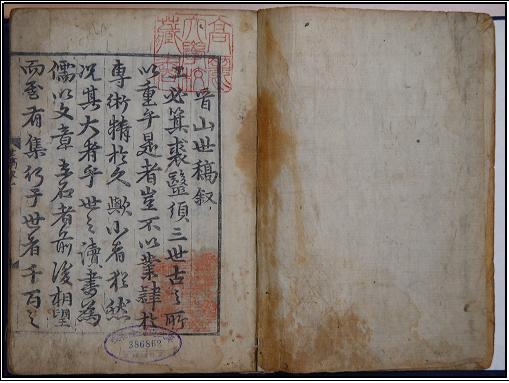 晉山世稿叙
工必箕裘醫須三世古之所
以重乎是者豈不以業肄於
專術精於久歟小者猶然
况其大者乎世之讀書為
儒以文章名者前後相望
而至有集行于世者千百之
386862